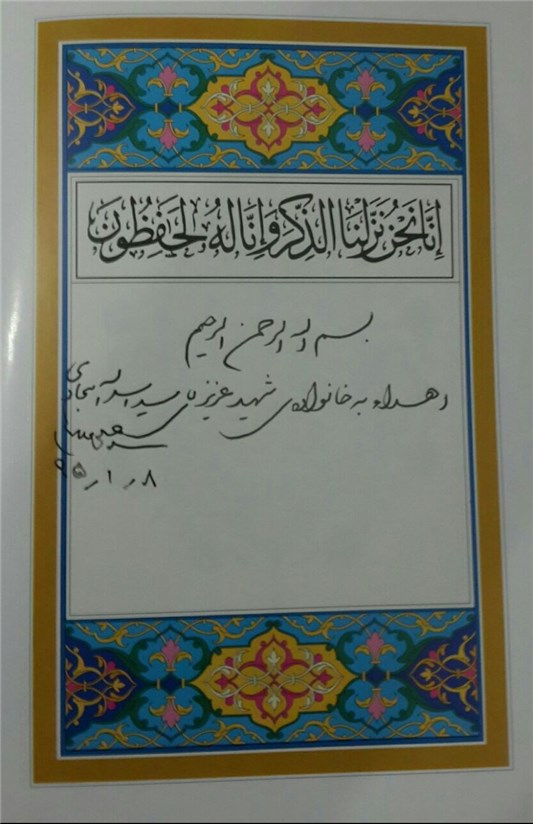 إِنَّا نَحْنُ نَزَّلْنَا الذِّكْرَ وَإِنَّا لَهُ لَحَفِظُونَ
بسم الله الرحمن الرحیم
اهداء به خانواده‌ی شهید عزیزمان سید اسدالله
۹۵ر۱ر۸